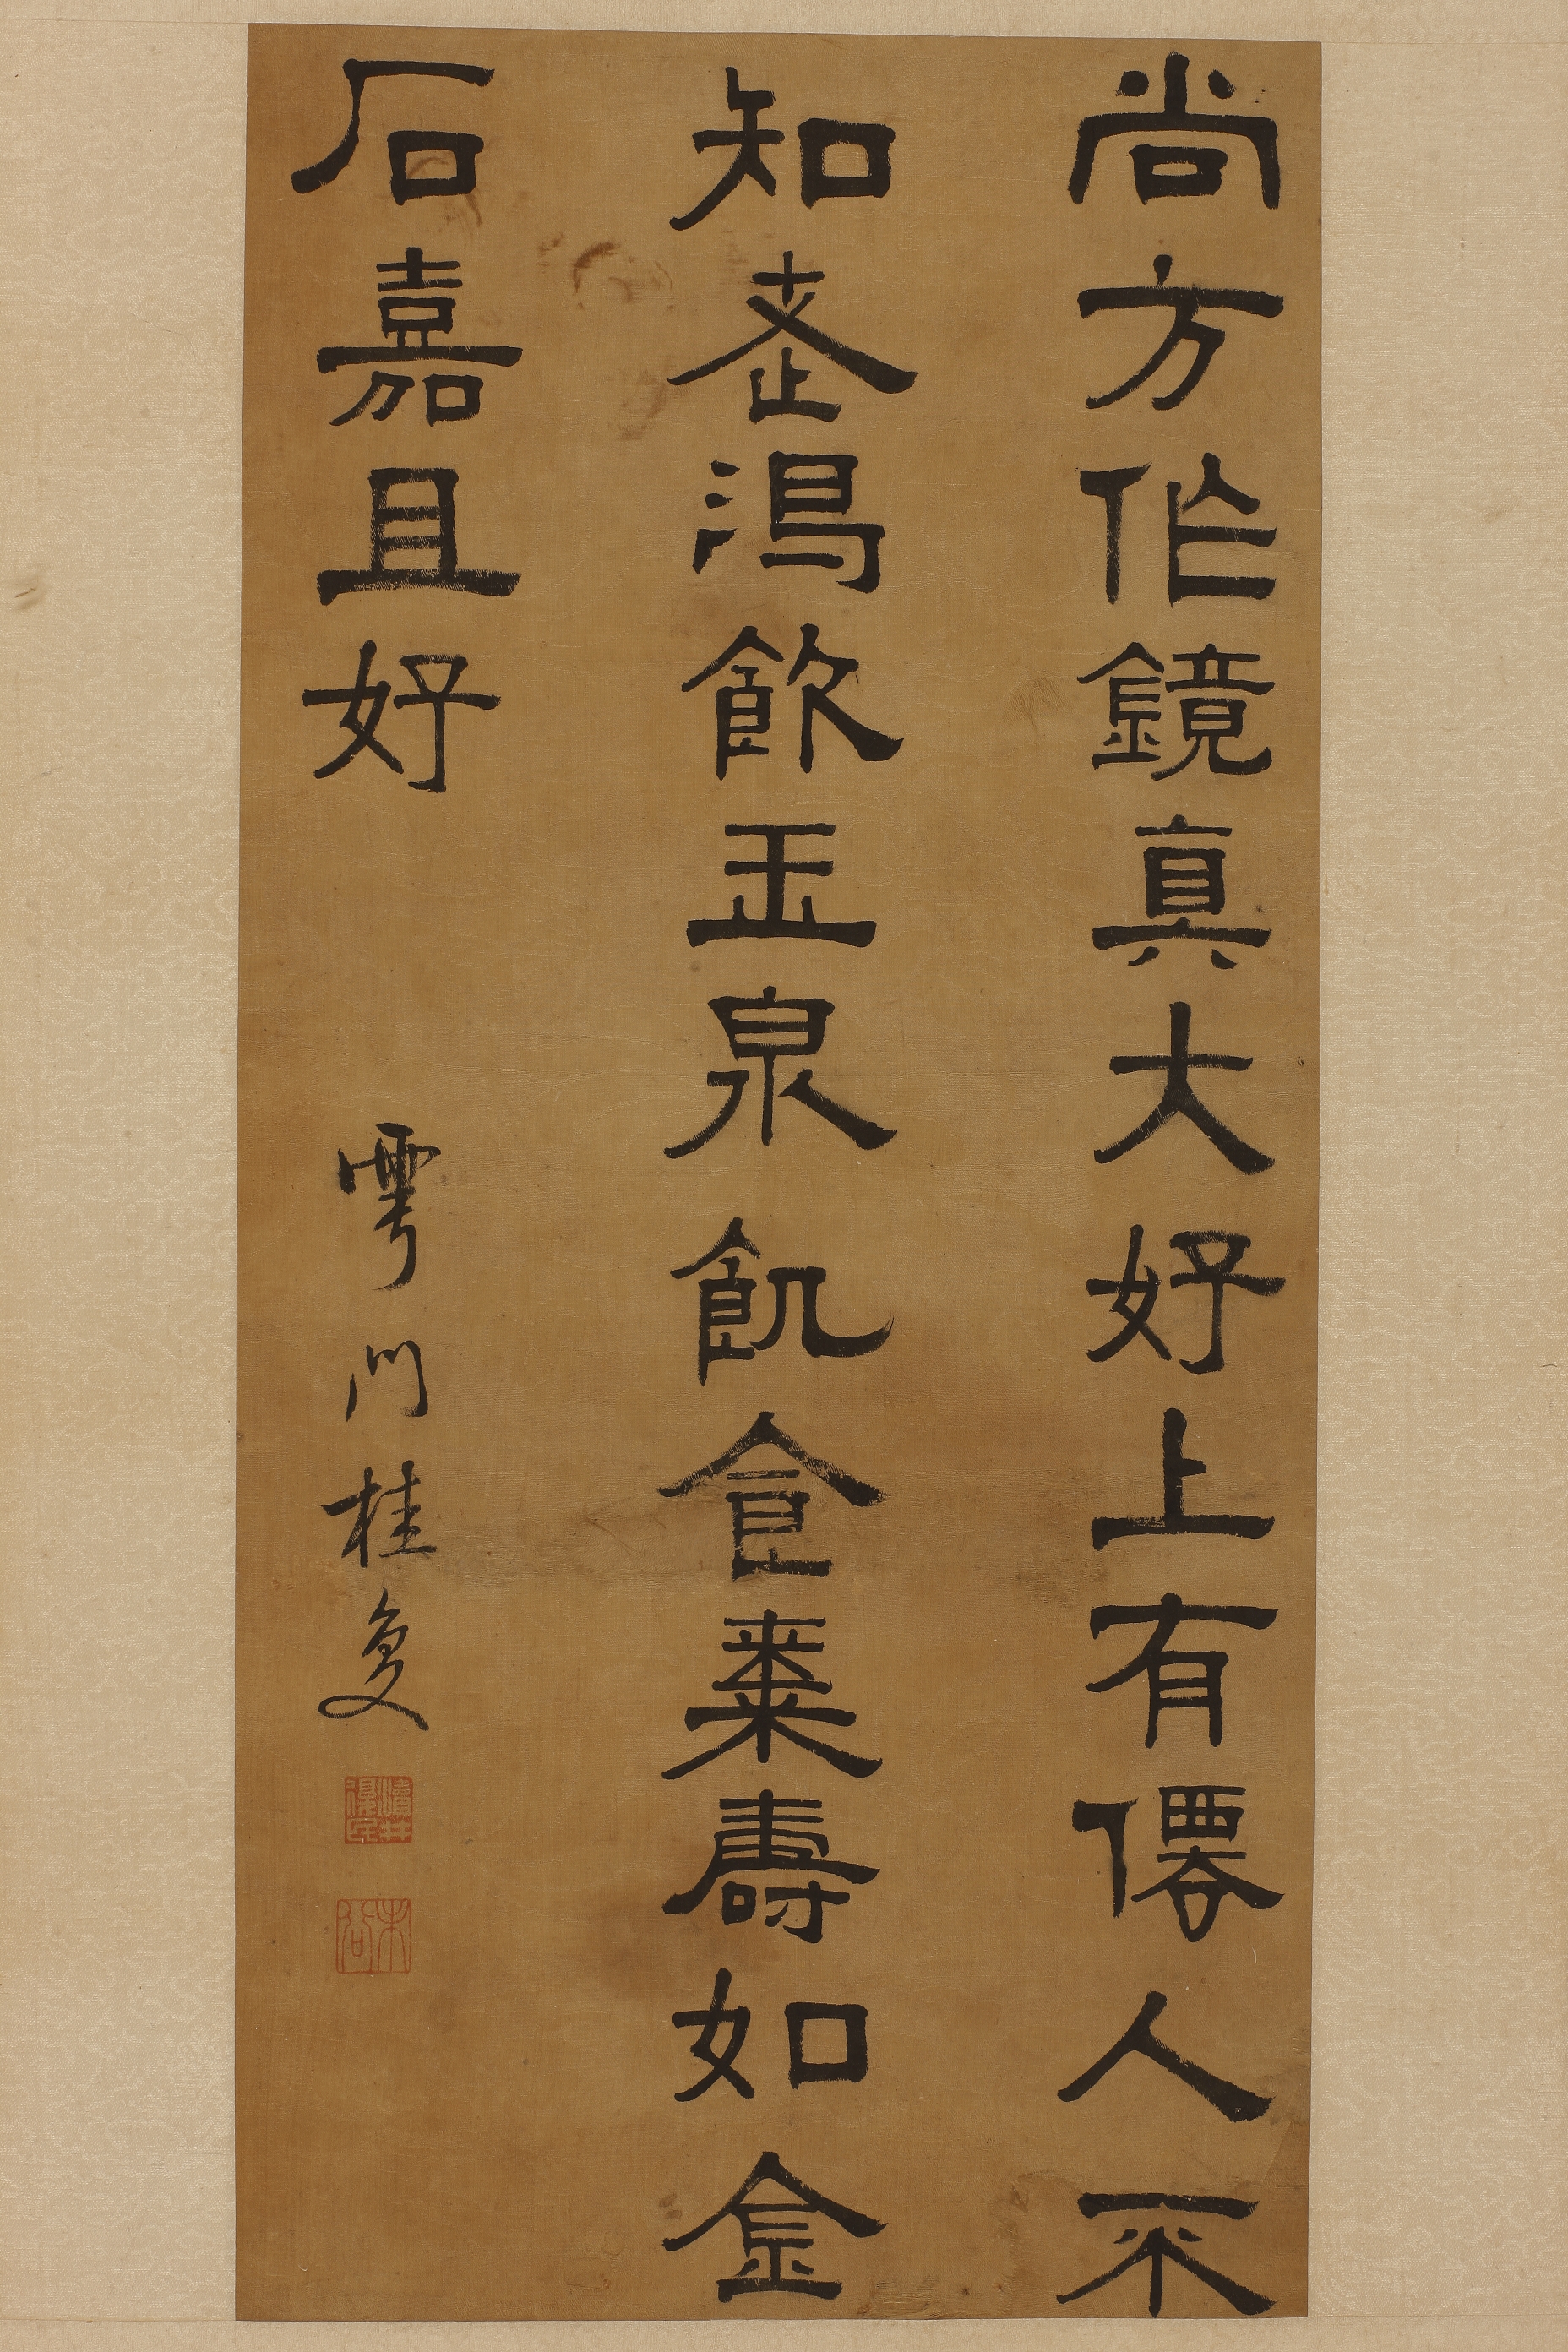 尚方作鏡真大好上有僊人不
知老渴飲玉泉飢食棗壽如金
石嘉且好
雩門桂复
瀆井復民
未谷